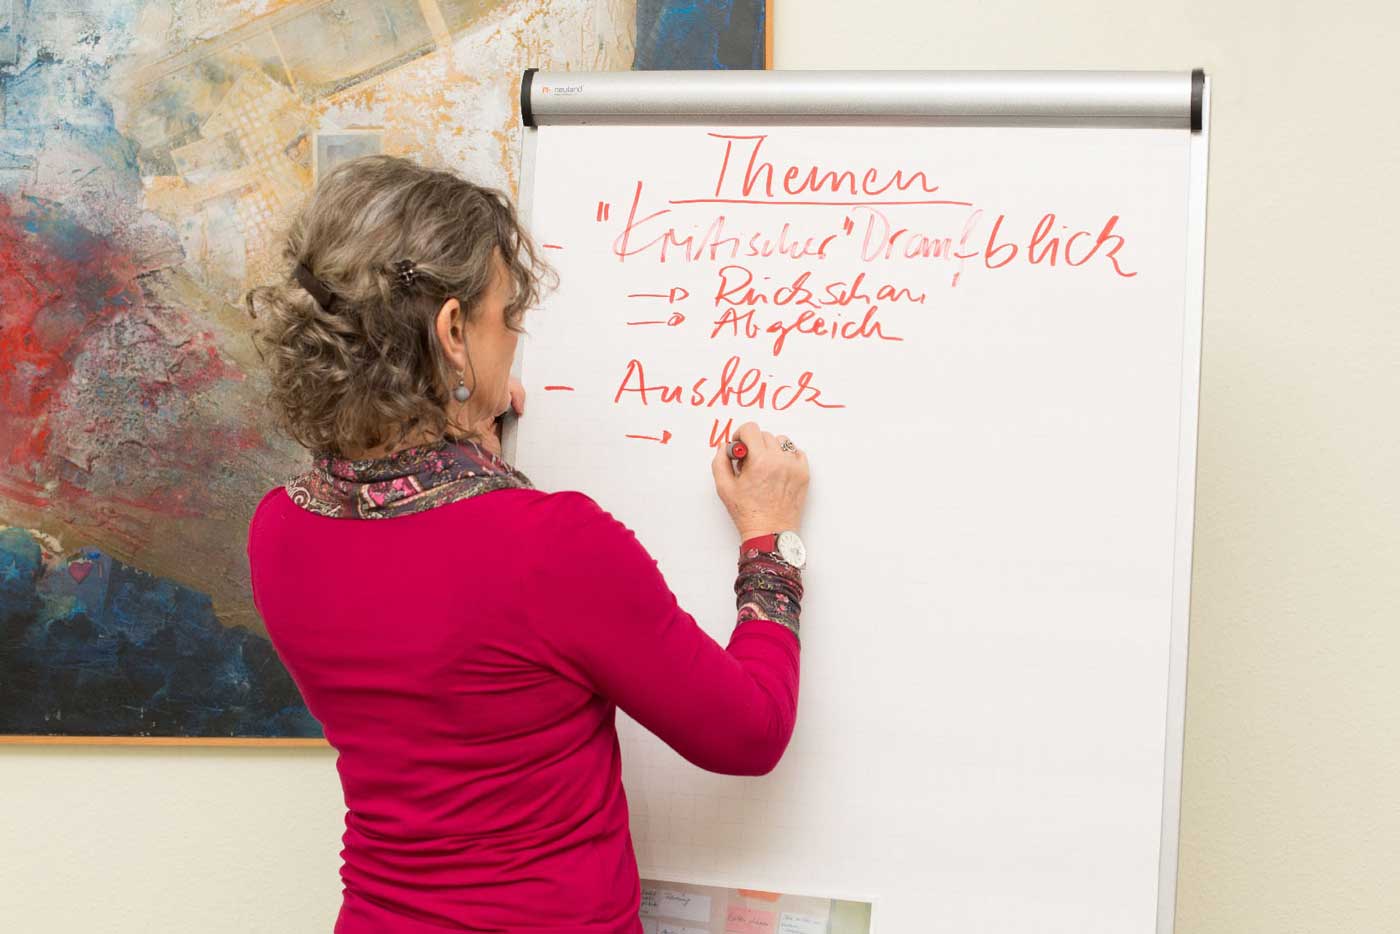 neuland
Themen
- "Kritischer" Drauf-blick
→ Rückschau
→ Abgleich
- Ausblick
→